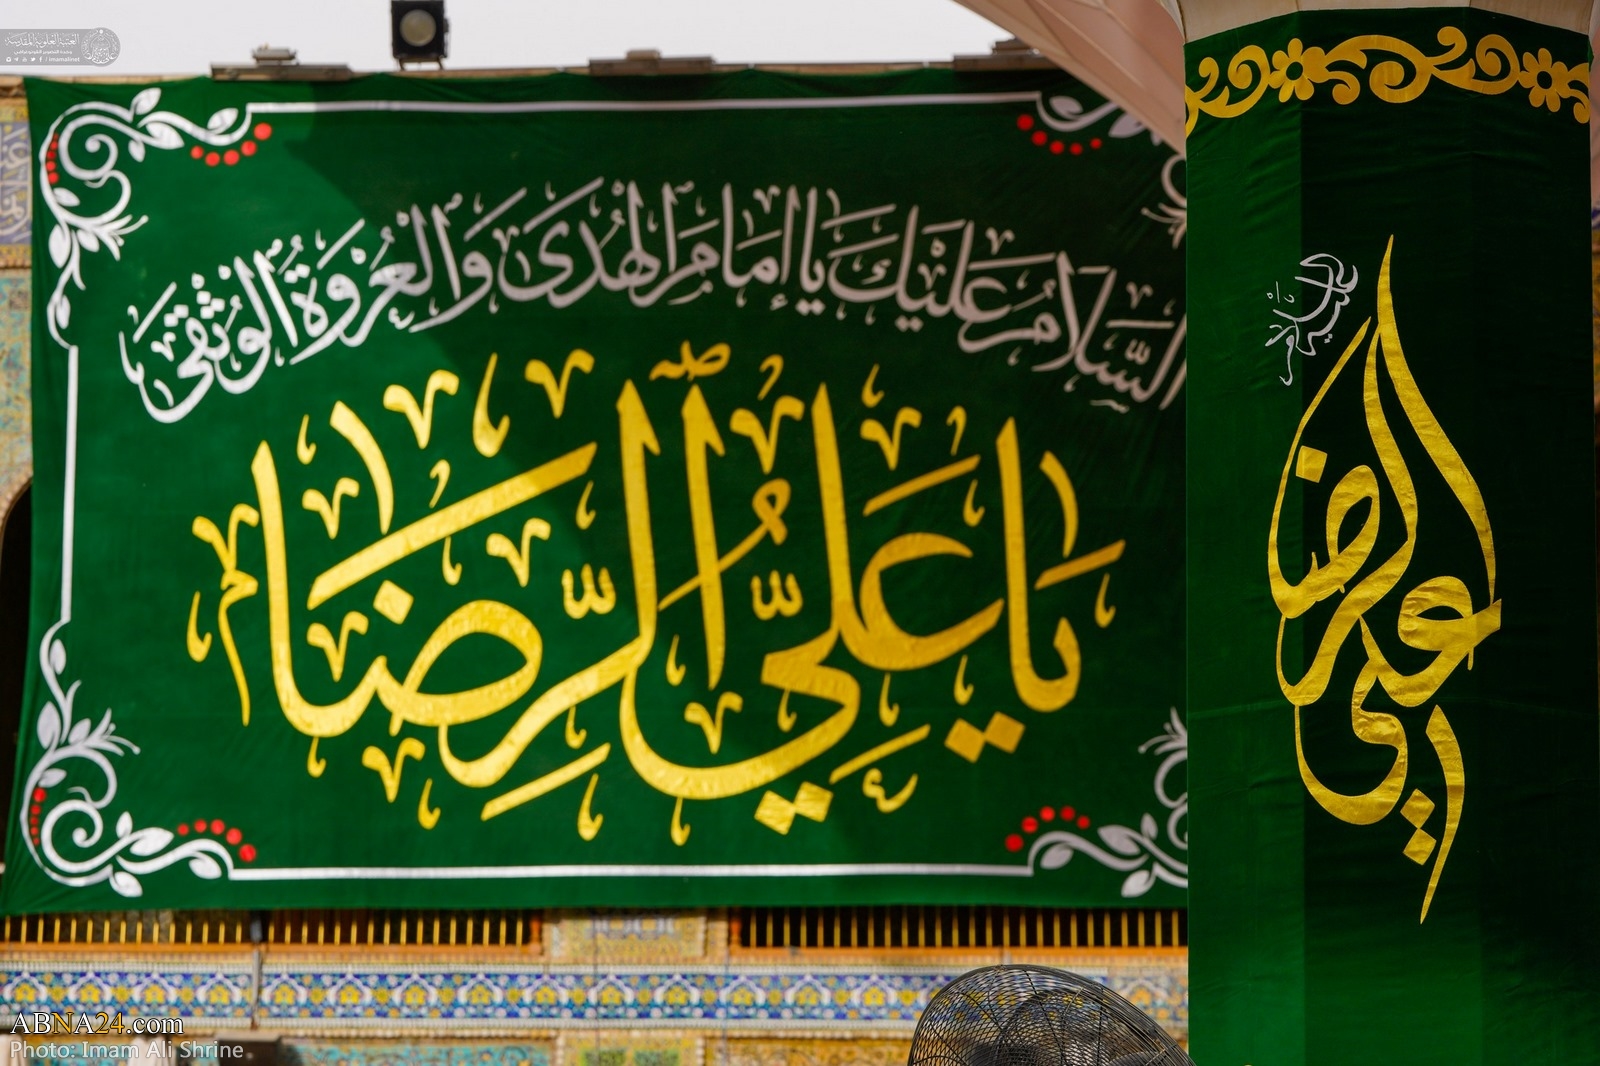 العتبة العلوية المقدسة
/ imamalinet
السَّلَامُ عَلَيْكَ يَا إِمَامَ الْهُدَى وَالْعُرْوَةُ الْوُثْقَى
يَا عَلِيُّ الرِّضَا
عليه السلام
علي الرضا
ABNA24.com
Photo: Imam Ali Shrine